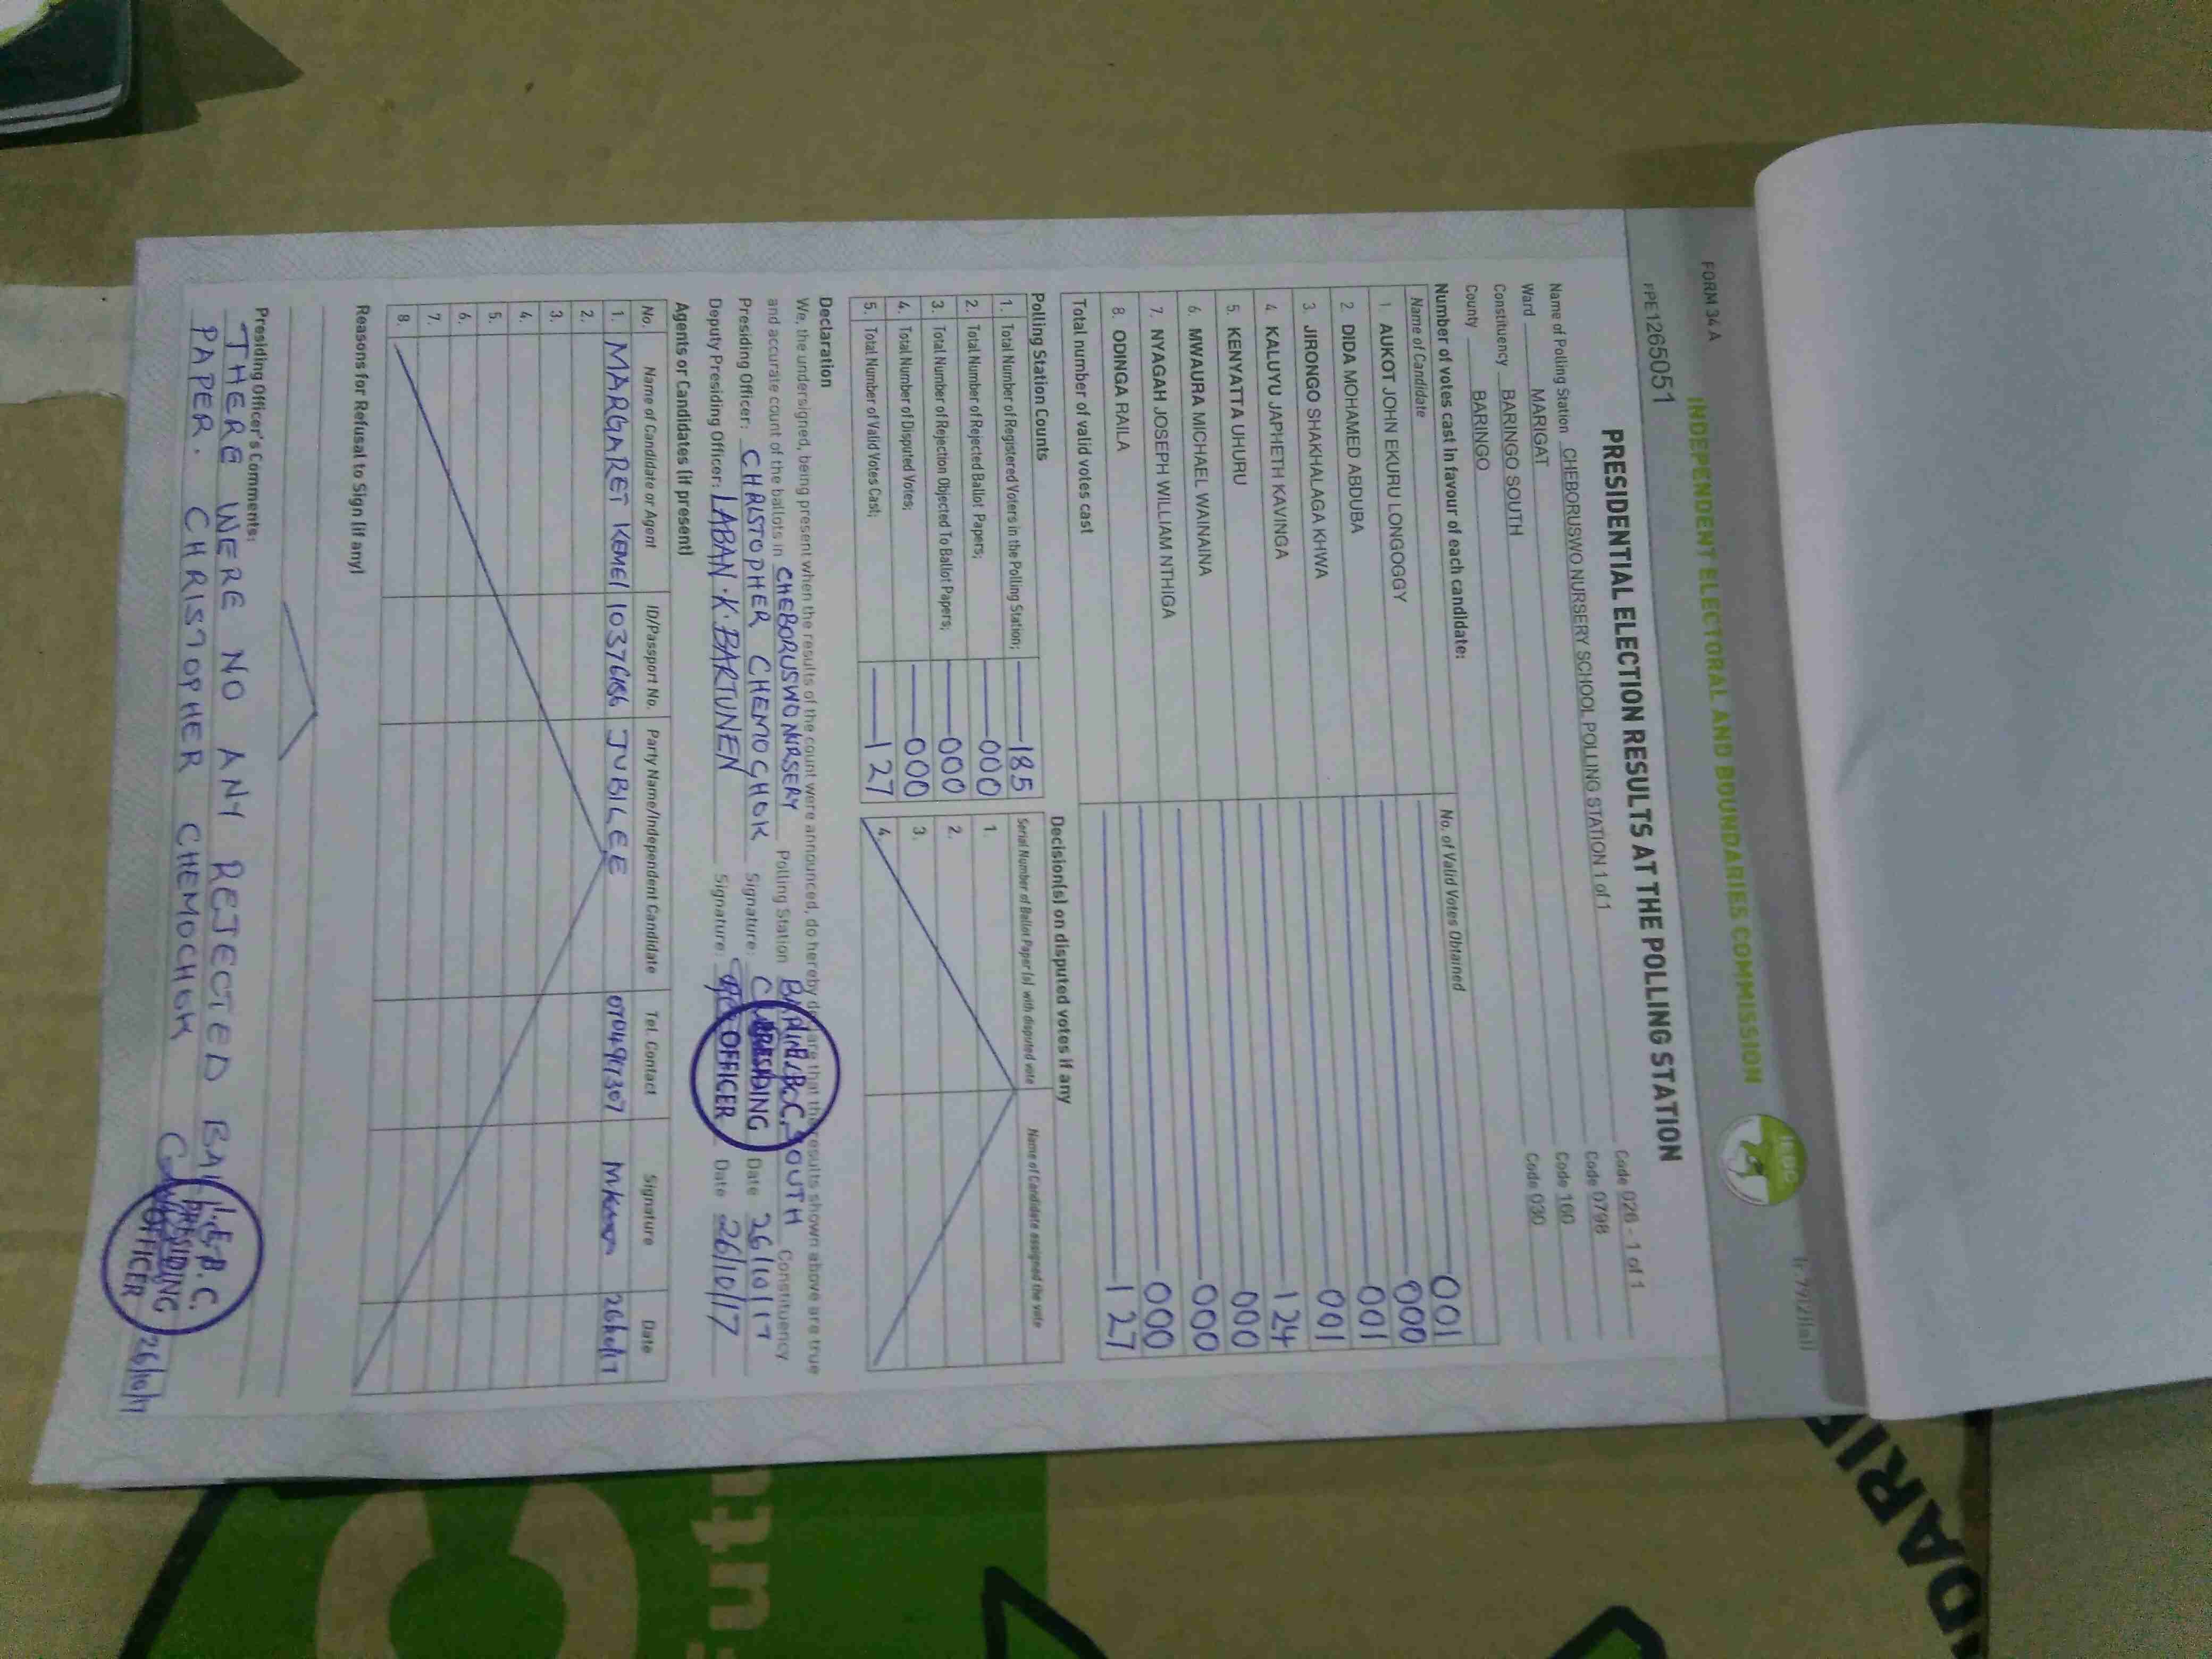 FORM 34 A
r. 79(2)(a)
INDEPENDENT ELECTORAL AND BOUNDARIES COMMISSION
IEBC
FPE1265051
PRESIDENTIAL ELECTION RESULTS AT THE POLLING STATION
Name of Polling Station CHEBORUSWO NURSERY SCHOOL POLLING STATION 1 of 1 Code 026 - 1 of 1
Ward MARIGAT Code 0798
Constituency BARINGO SOUTH Code 160
County BARINGO Code 030
Number of votes cast in favour of each candidate:
Name of Candidate No. of Valid Votes Obtained
1. AUKOT JOHN EKURU LONGOGGY 001
2. DIDA MOHAMED ABDUBA 000
3. JIRONGO SHAKHALAGA KHWA 001
4. KALUYU JAPHETH KAVINGA 001
5. KENYATTA UHURU 124
6. MWAURA MICHAEL WAINAINA 000
7. NYAGAH JOSEPH WILLIAM NTHIGA 000
8. ODINGA RAILA 000
Total number of valid votes cast 127
Polling Station Counts
1. Total Number of Registered Voters in the Polling Station; 185
2. Total Number of Rejected Ballot Papers; 000
3. Total Number of Rejection Objected To Ballot Papers; 000
4. Total Number of Disputed Votes; 000
5. Total Number of Valid Votes Cast; 127
Decision(s) on disputed votes if any
Serial Number of Ballot Paper (s) with disputed vote Name of Candidate assigned the vote
1.
2.
3.
4.
Declaration
We, the undersigned, being present when the results of the count were announced, do hereby declare that the results shown above are true
and accurate count of the ballots in CHEBORUSWO NURSERY Polling Station BARINGO SOUTH Constituency
Presiding Officer: CHRISTOPHER CHEMOCHOK Signature: Date 26/10/17
Deputy Presiding Officer: LABAN .K. BARTUNEN Signature: Date 26/10/17
PRESIDING
OFFICER
Agents or Candidates (if present)
No. Name of Candidate or Agent ID/Passport No. Party Name/Independent Candidate Tel. Contact Signature Date
1. MARGARET KEMEI JUBILEE 26/10/17
2.
3.
4.
5.
6.
7.
8.
Reasons for Refusal to Sign (if any)
Presiding Officer's Comments:
THERE WERE NO ANY REJECTED
PAPER. CHRISTOPHER CHEMOCHOK 26/10/17
I.E.B.C.
PRESIDING
OFFICER